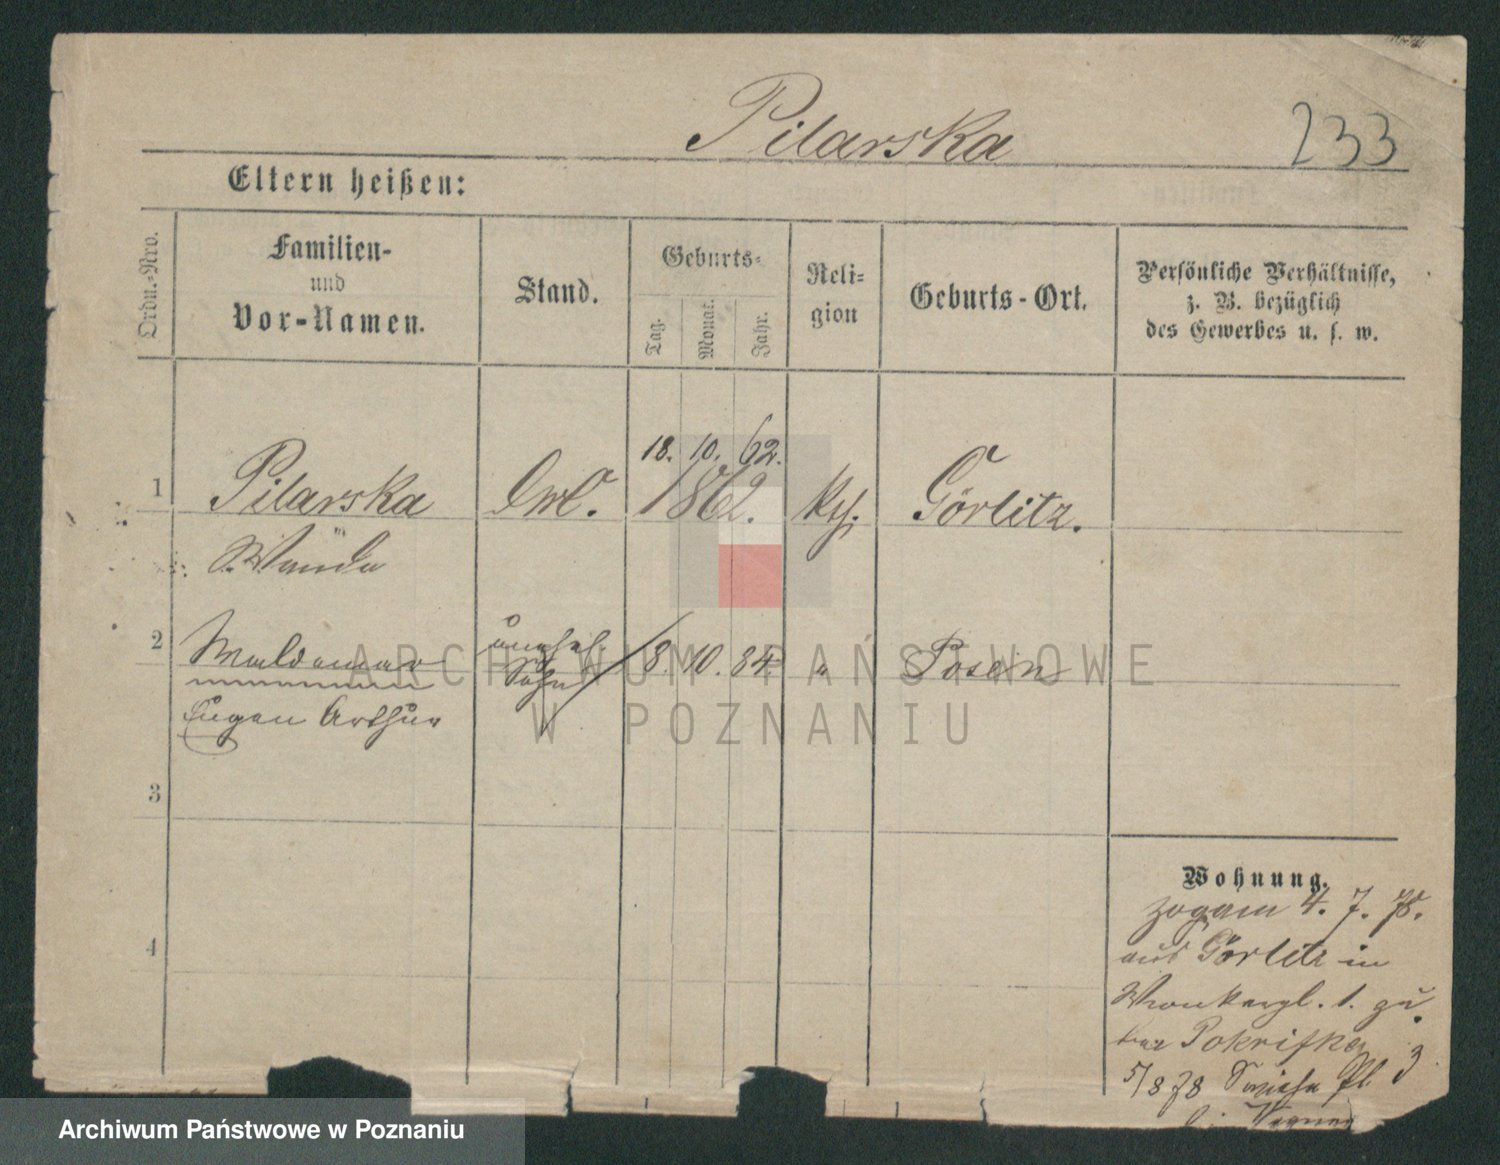 Pilarska
233
Eltern heißen:
Ordn.-Nro.
Familien-
und
Vor-Namen.
Stand.
Geburts-
Tag.
Monat.
Jahr.
Reli-
gion
Geburts-Ort.
Persönliche Verhältnisse,
z. B. bezüglich
des Gewerbes u. s. w.
18. 10. 62.
1 Pilarska 1862. Görlitz.
Wanda
2 Waldemar unehel. 8. 10. 84 " Posen
Sohn
Eugen Arthur
3
4
Wohnung.
zogam 4. 7. 78.
aus Görlitz in
1. zu
Pokrifka
5/8 78 3
ARCHIWUM PAŃSTWOWE
W POZNANIU
Archiwum Państwowe w Poznaniu